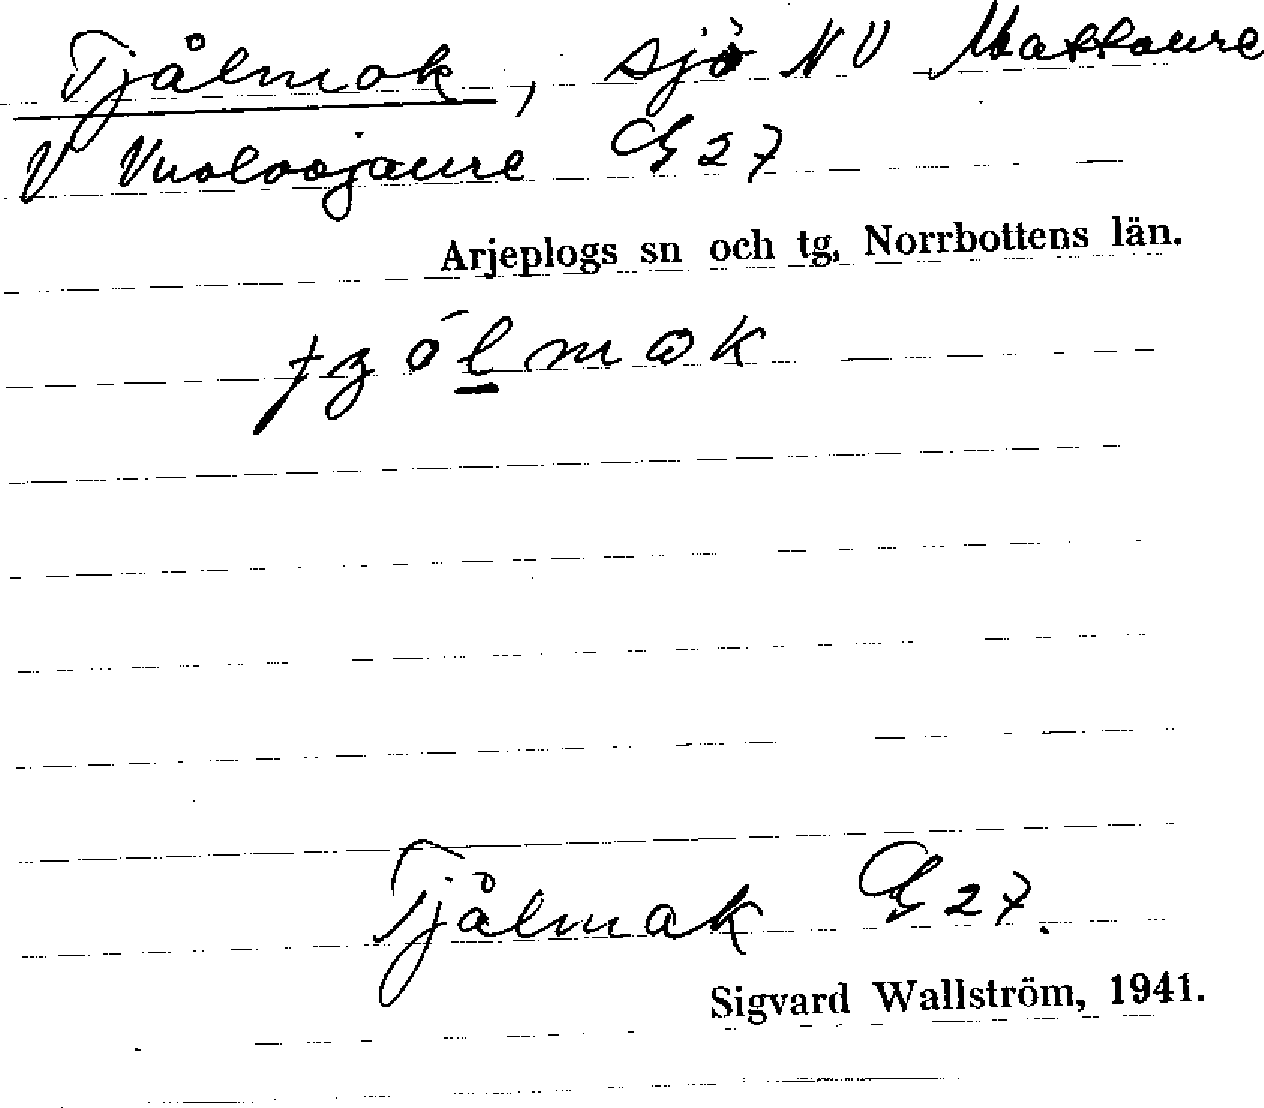 Tjålmak, sjö NV Mattaure
V Vuoloojaure G 27
Arjeplogs sn och tg, Norrbottens län.
Tjålmak G 27.
Sigvard Wallström, 1941.